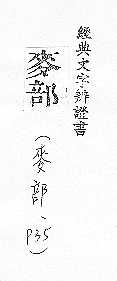 經典文字辨證書
麥部
(麥部、P35)